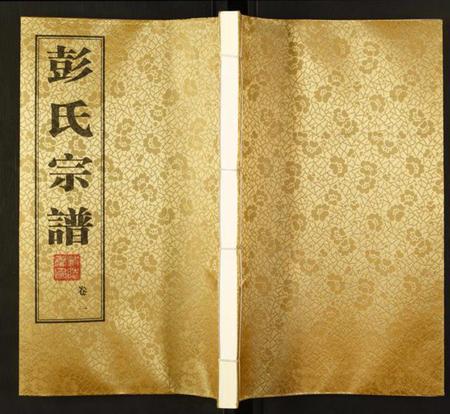 彭氏宗譜
卷一